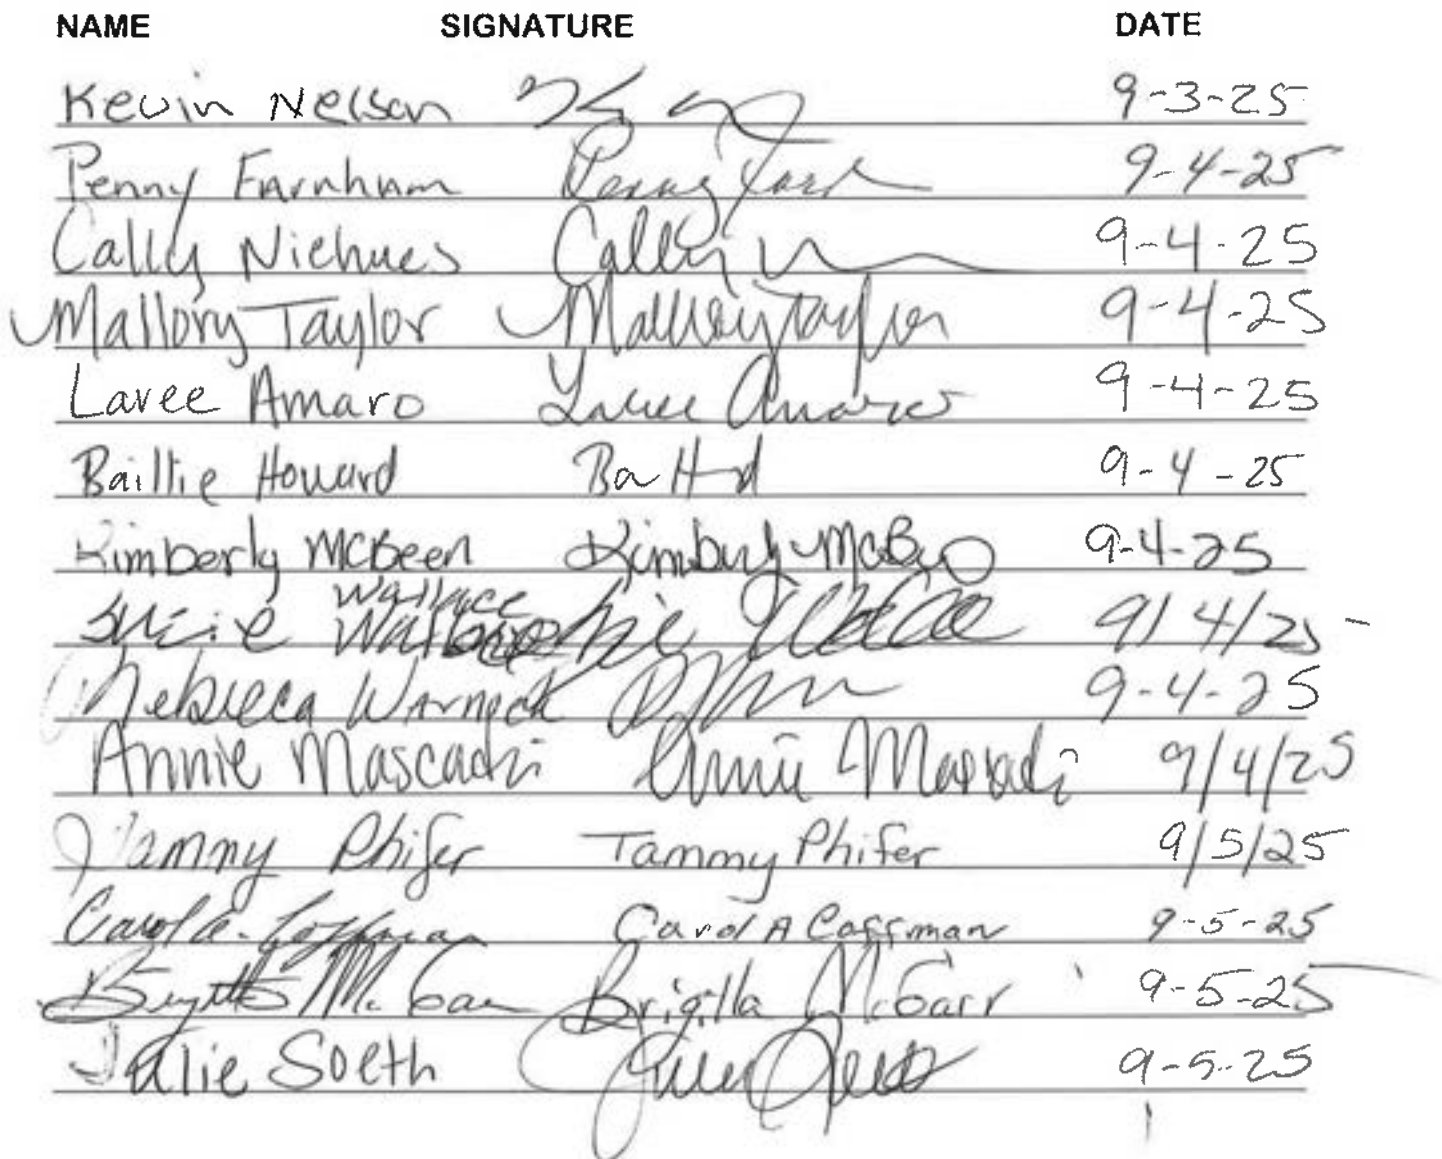 NAME SIGNATURE DATE
Kevin Nelson 9-3-25
Penny Farnham Penny Farn 9-4-25
Cally Niehues Cally N 9-4-25
Mallory Taylor Mallory Taylor 9-4-25
Lavee Amaro Lavee Amaro 9-4-25
Baillie Howard Ba H-d 9-4-25
Kimberly McBeen Kimberly McBeen 9-4-25
Wallace
Suzie Wallace 9/4/25
Rebecca Warnock 9-4-25
Annie Mascadri Annie Mascadri 9/4/25
Tammy Phifer Tammy Phifer 9/5/25
Carol A. Coffman Carol A Coffman 9-5-25
McGarr 9-5-25
Julie Soeth Julie Soeth 9-5-25